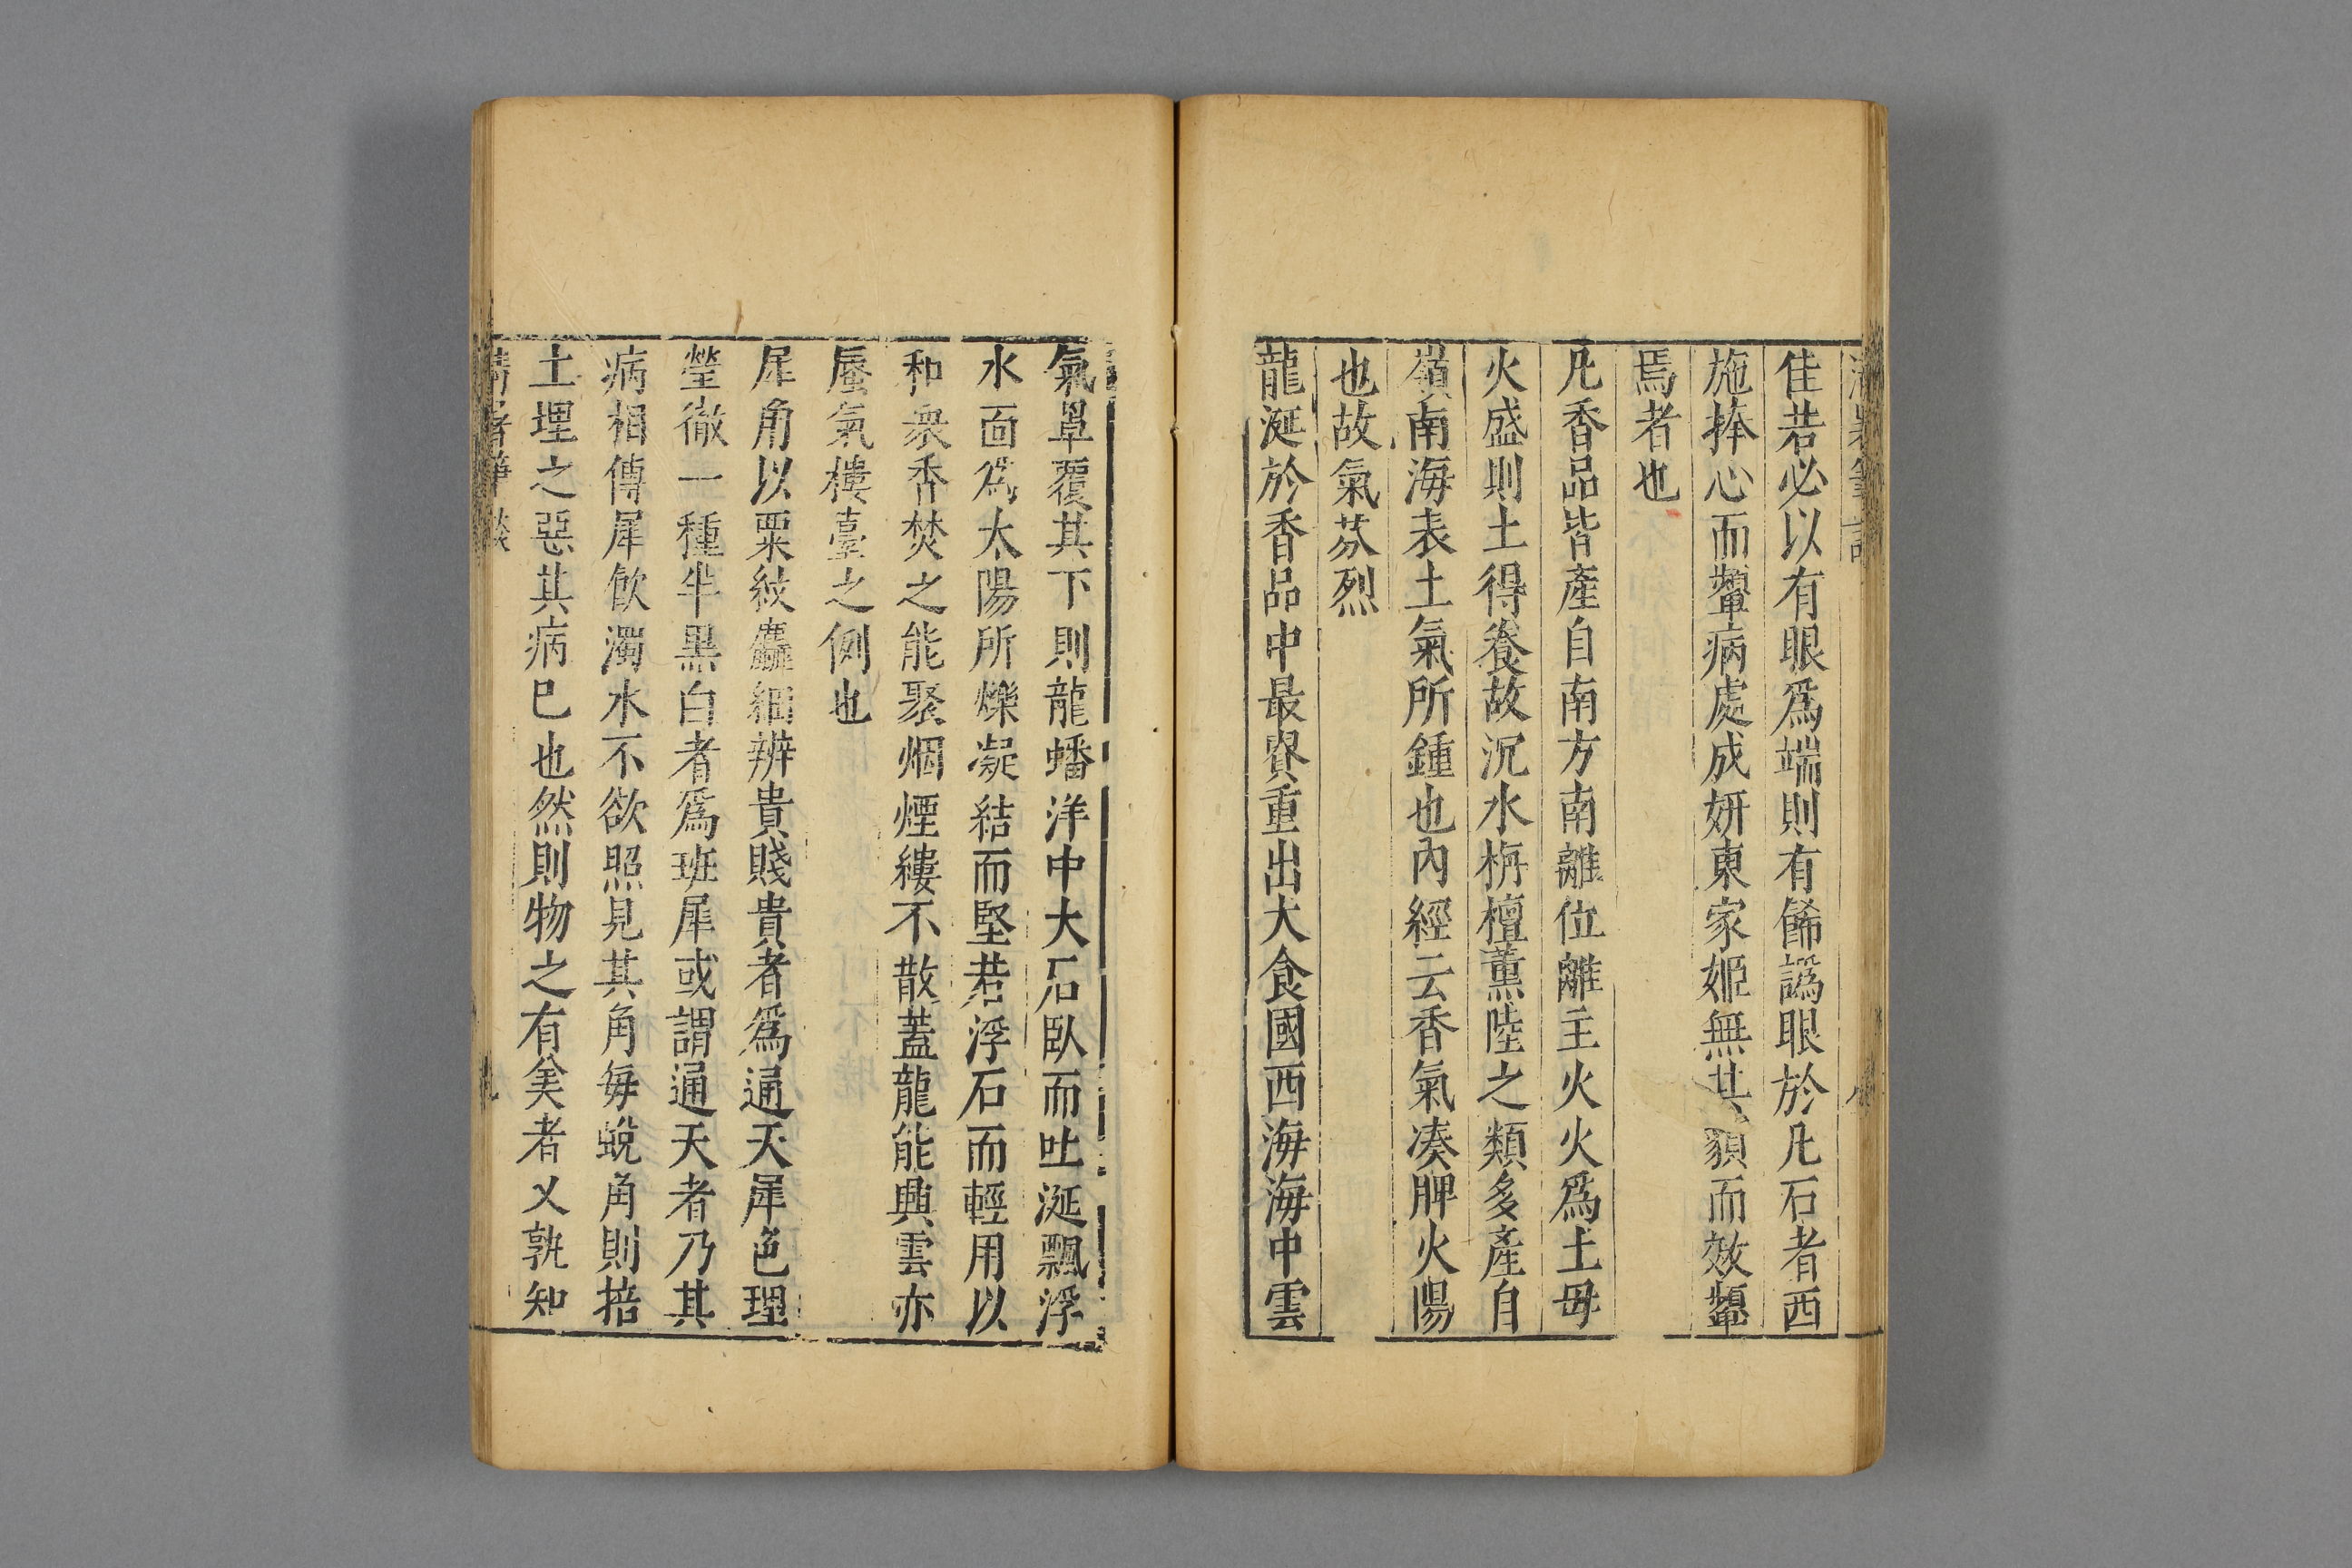 佳若必以有眼爲端則有餙譌眼於凡石者西
施捧心而顰病處成妍東家姬無其貌而效顰
焉者也
凡香品皆產自南方南離位離主火火爲土母
火盛則土得養故沉水栴檀薰陸之類多產自
嶺南海表土氣所鍾也內經云香氣凑脾火陽
也故氣芬烈
龍涎於香品中最貴重出大食國西海海中雲
氣罩覆其下則龍蟠洋中大石臥而吐涎飄浮
水面爲太陽所爍凝結而堅若浮石而輕用以
和衆香焚之能聚烟煙縷不散蓋龍能興雲亦
蜃氣樓臺之側也
犀角以粟紋麤細辨貴賤貴者爲通天犀色理
瑩徹一種半黑白者爲班犀或謂通天者乃其
病相傳犀飲濁水不欲照見其角每蛻角則掊
土埋之惡其病巳也然則物之有美者乂孰知